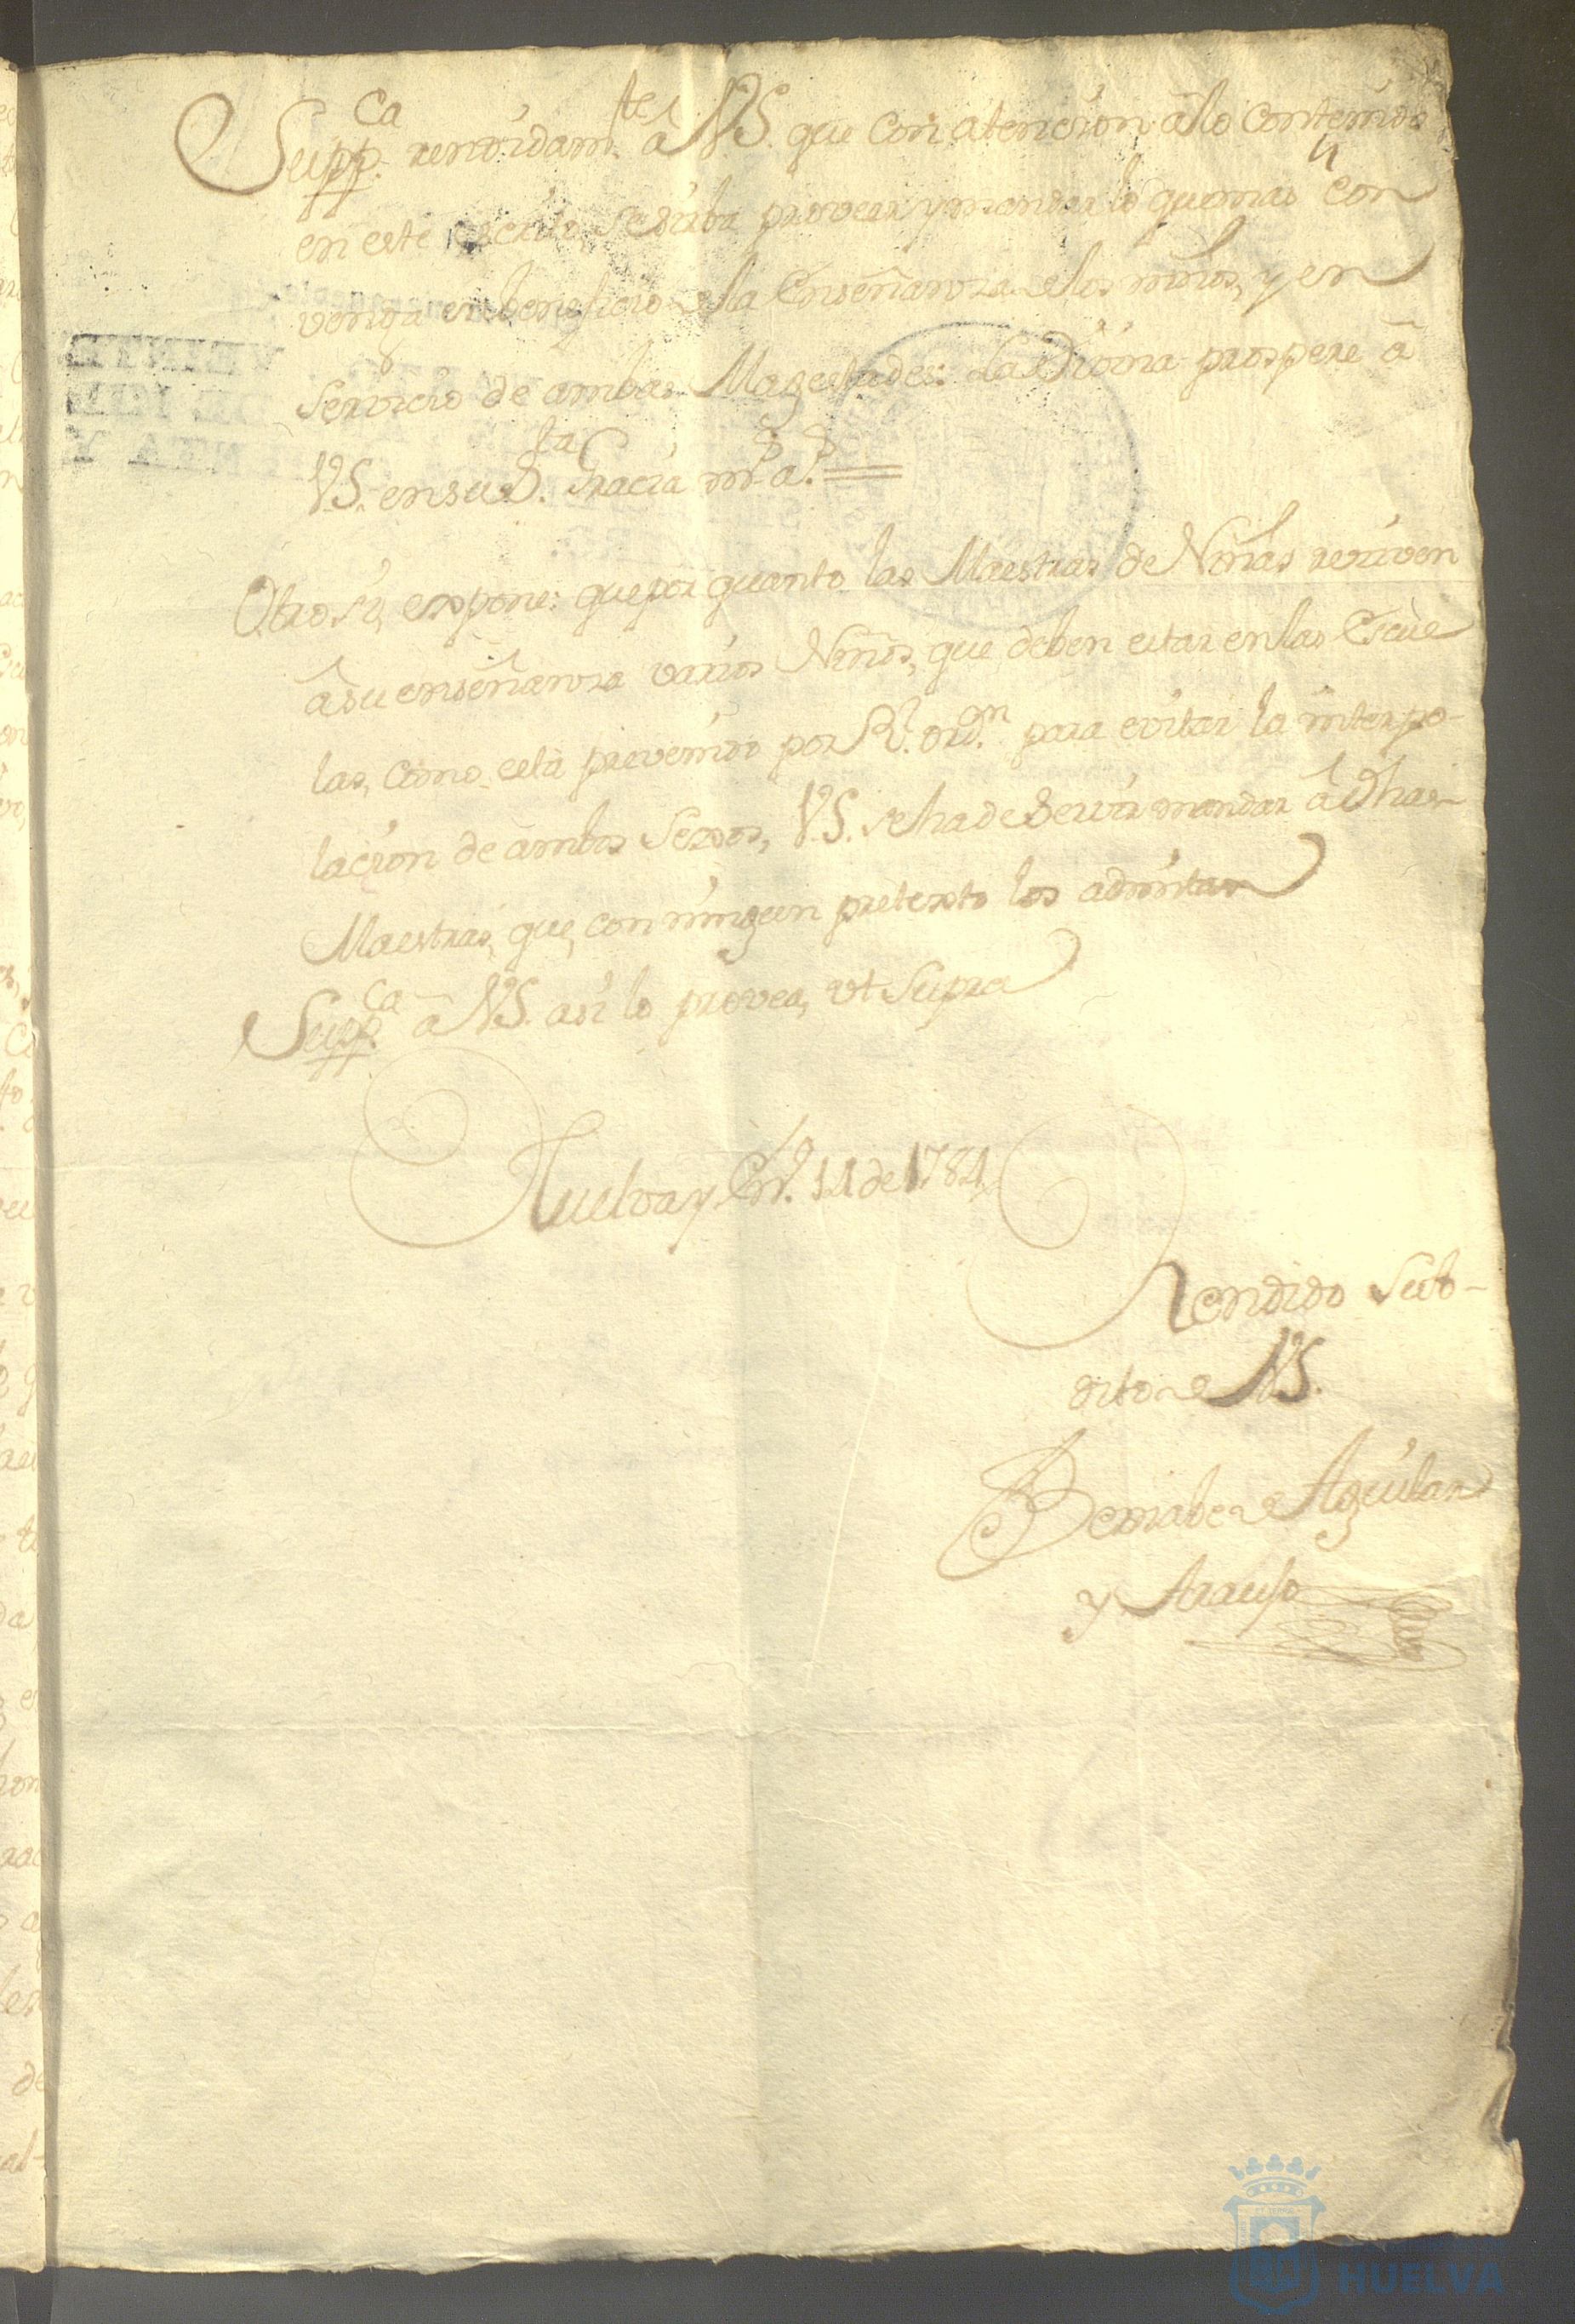 Supp.ca rendidam.te â V.S. que con atencion â lo contenido
4
en este escrito, se sirba proveer y mandar lo que mas con
venga en beneficio de la Enseñanza de los niños, y en
servicio de ambas Magestades: La Divina prospere â
V.S. en su S.ta Gracia m.s a.s
Otro si, expone: que por quanto las Maestras de Niñas reciven
â su enseñanza varios Niños, que deben estar en las Escue
las, como está prevenido por R.l ord.n para evitar la interpo-
lacion de ambos Sexos, V.S. se ha de Servir mandar â Dhas
Maestras, que, con ningun pretexto los admitan
Supp.ca â V.S. asi lo provea, ut Supra
Huelva y En.o 14 de 1784
Rendido Sub-
dito de V.S.
Bernabe de Aguilar
y Araujo
HUELVA